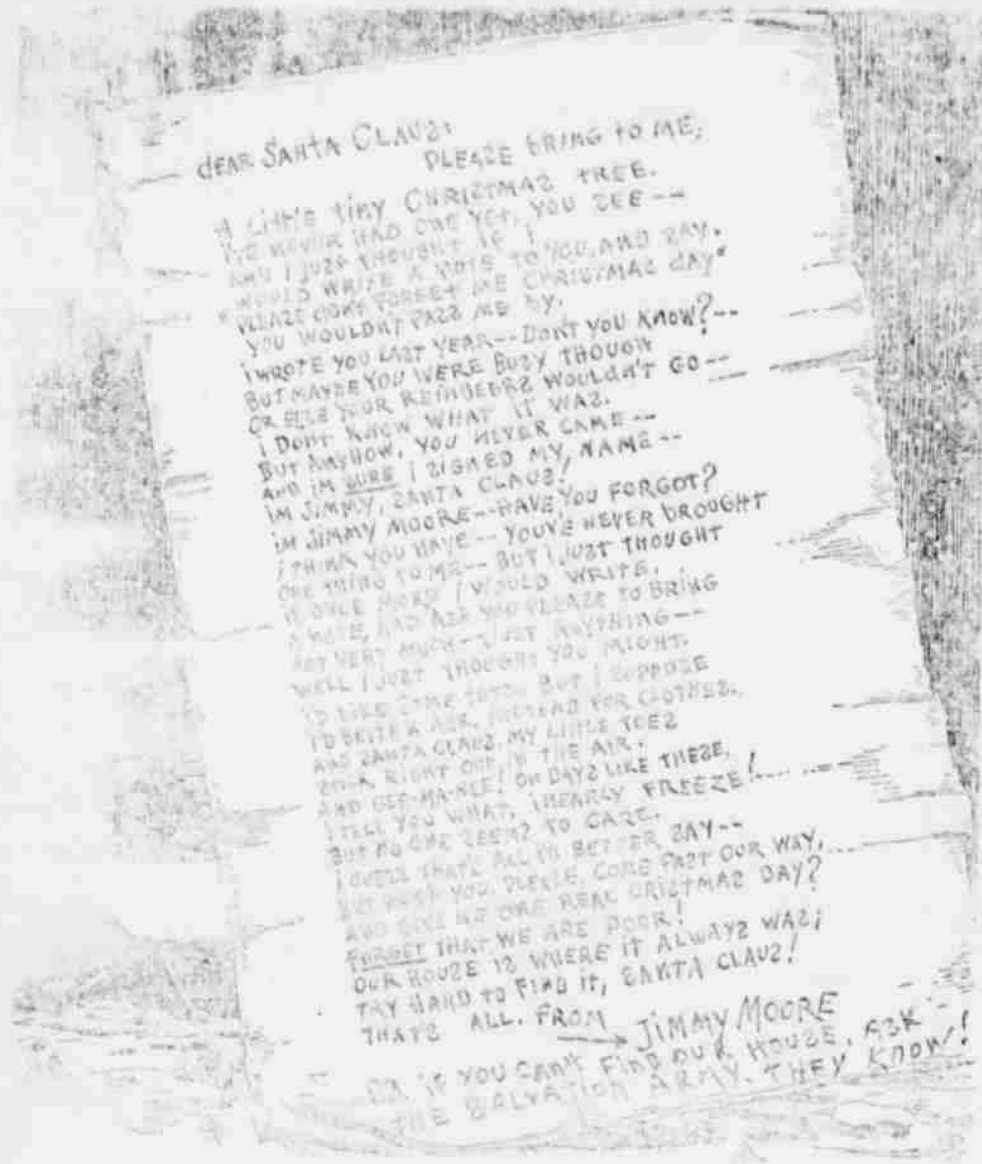 dEAR SANTA CLAUS:
PLEASE BRING TO ME,
A LITTLE TINY CHRISTMAS TREE.
I'VE NEVER HAD ONE YET, YOU SEE--
AND I JUST THOUGHT IF I
WOULD WRITE A NOTE TO YOU, AND SAY,
"PLEASE DON'T FORGET ME CHRISTMAS dAY"
YOU WOULDN'T PASS ME BY.
I WROTE YOU LAST YEAR--DON'T YOU KNOW?--
BUT MAYBE YOU WERE BUSY THOUGH
OR ELSE YOUR REINDEERS WOULdN'T GO--
I DON'T KNOW WHAT IT WAS.
BUT ANYHOW, YOU NEVER CAME--
AND IM SURE I SIGNED MY NAME--
IM JIMMY, SANTA CLAUS!
IM JIMMY MOORE--HAVE YOU FORGOT?
I THINK YOU HAVE--YOUVE NEVER BROUGHT
ONE THING TO ME--BUT I JUST THOUGHT
IF ONCE MORE I WOULD WRITE,
A NOTE, AND ASK YOU PLEASE TO BRING
NOT VERY MUCH--JUST ANYTHING--
WELL I JUST THOUGHT YOU MIGHT.
I'D LIKE SOME TOYS BUT I SUPPOSE
I'D BETTER ASK, INSTEAD FOR CLOTHES.
AND SANTA CLAUS, MY LITTLE TOES
STICK RIGHT OUT IN THE AIR!
AND ON DAYS LIKE THESE,
I TELL YOU WHAT, I NEARLY FREEZE!
BUT NO ONE SEEMS TO CARE.
I GUESS THAT'S ALL I'D BETTER SAY--
BUT WON'T YOU, PLEASE, COME PAST OUR WAY,
AND GIVE ME ONE REAL CRISTMAS DAY?
FORGET THAT WE ARE POOR!
OUR HOUSE IS WHERE IT ALWAYS WAS;
TRY HARD TO FIND IT, SANTA CLAUS!
THATS ALL. FROM
JIMMY MOORE
IF YOU CAN'T FIND OUR HOUSE, ASK
THE SALVATION ARMY. THEY KNOW!